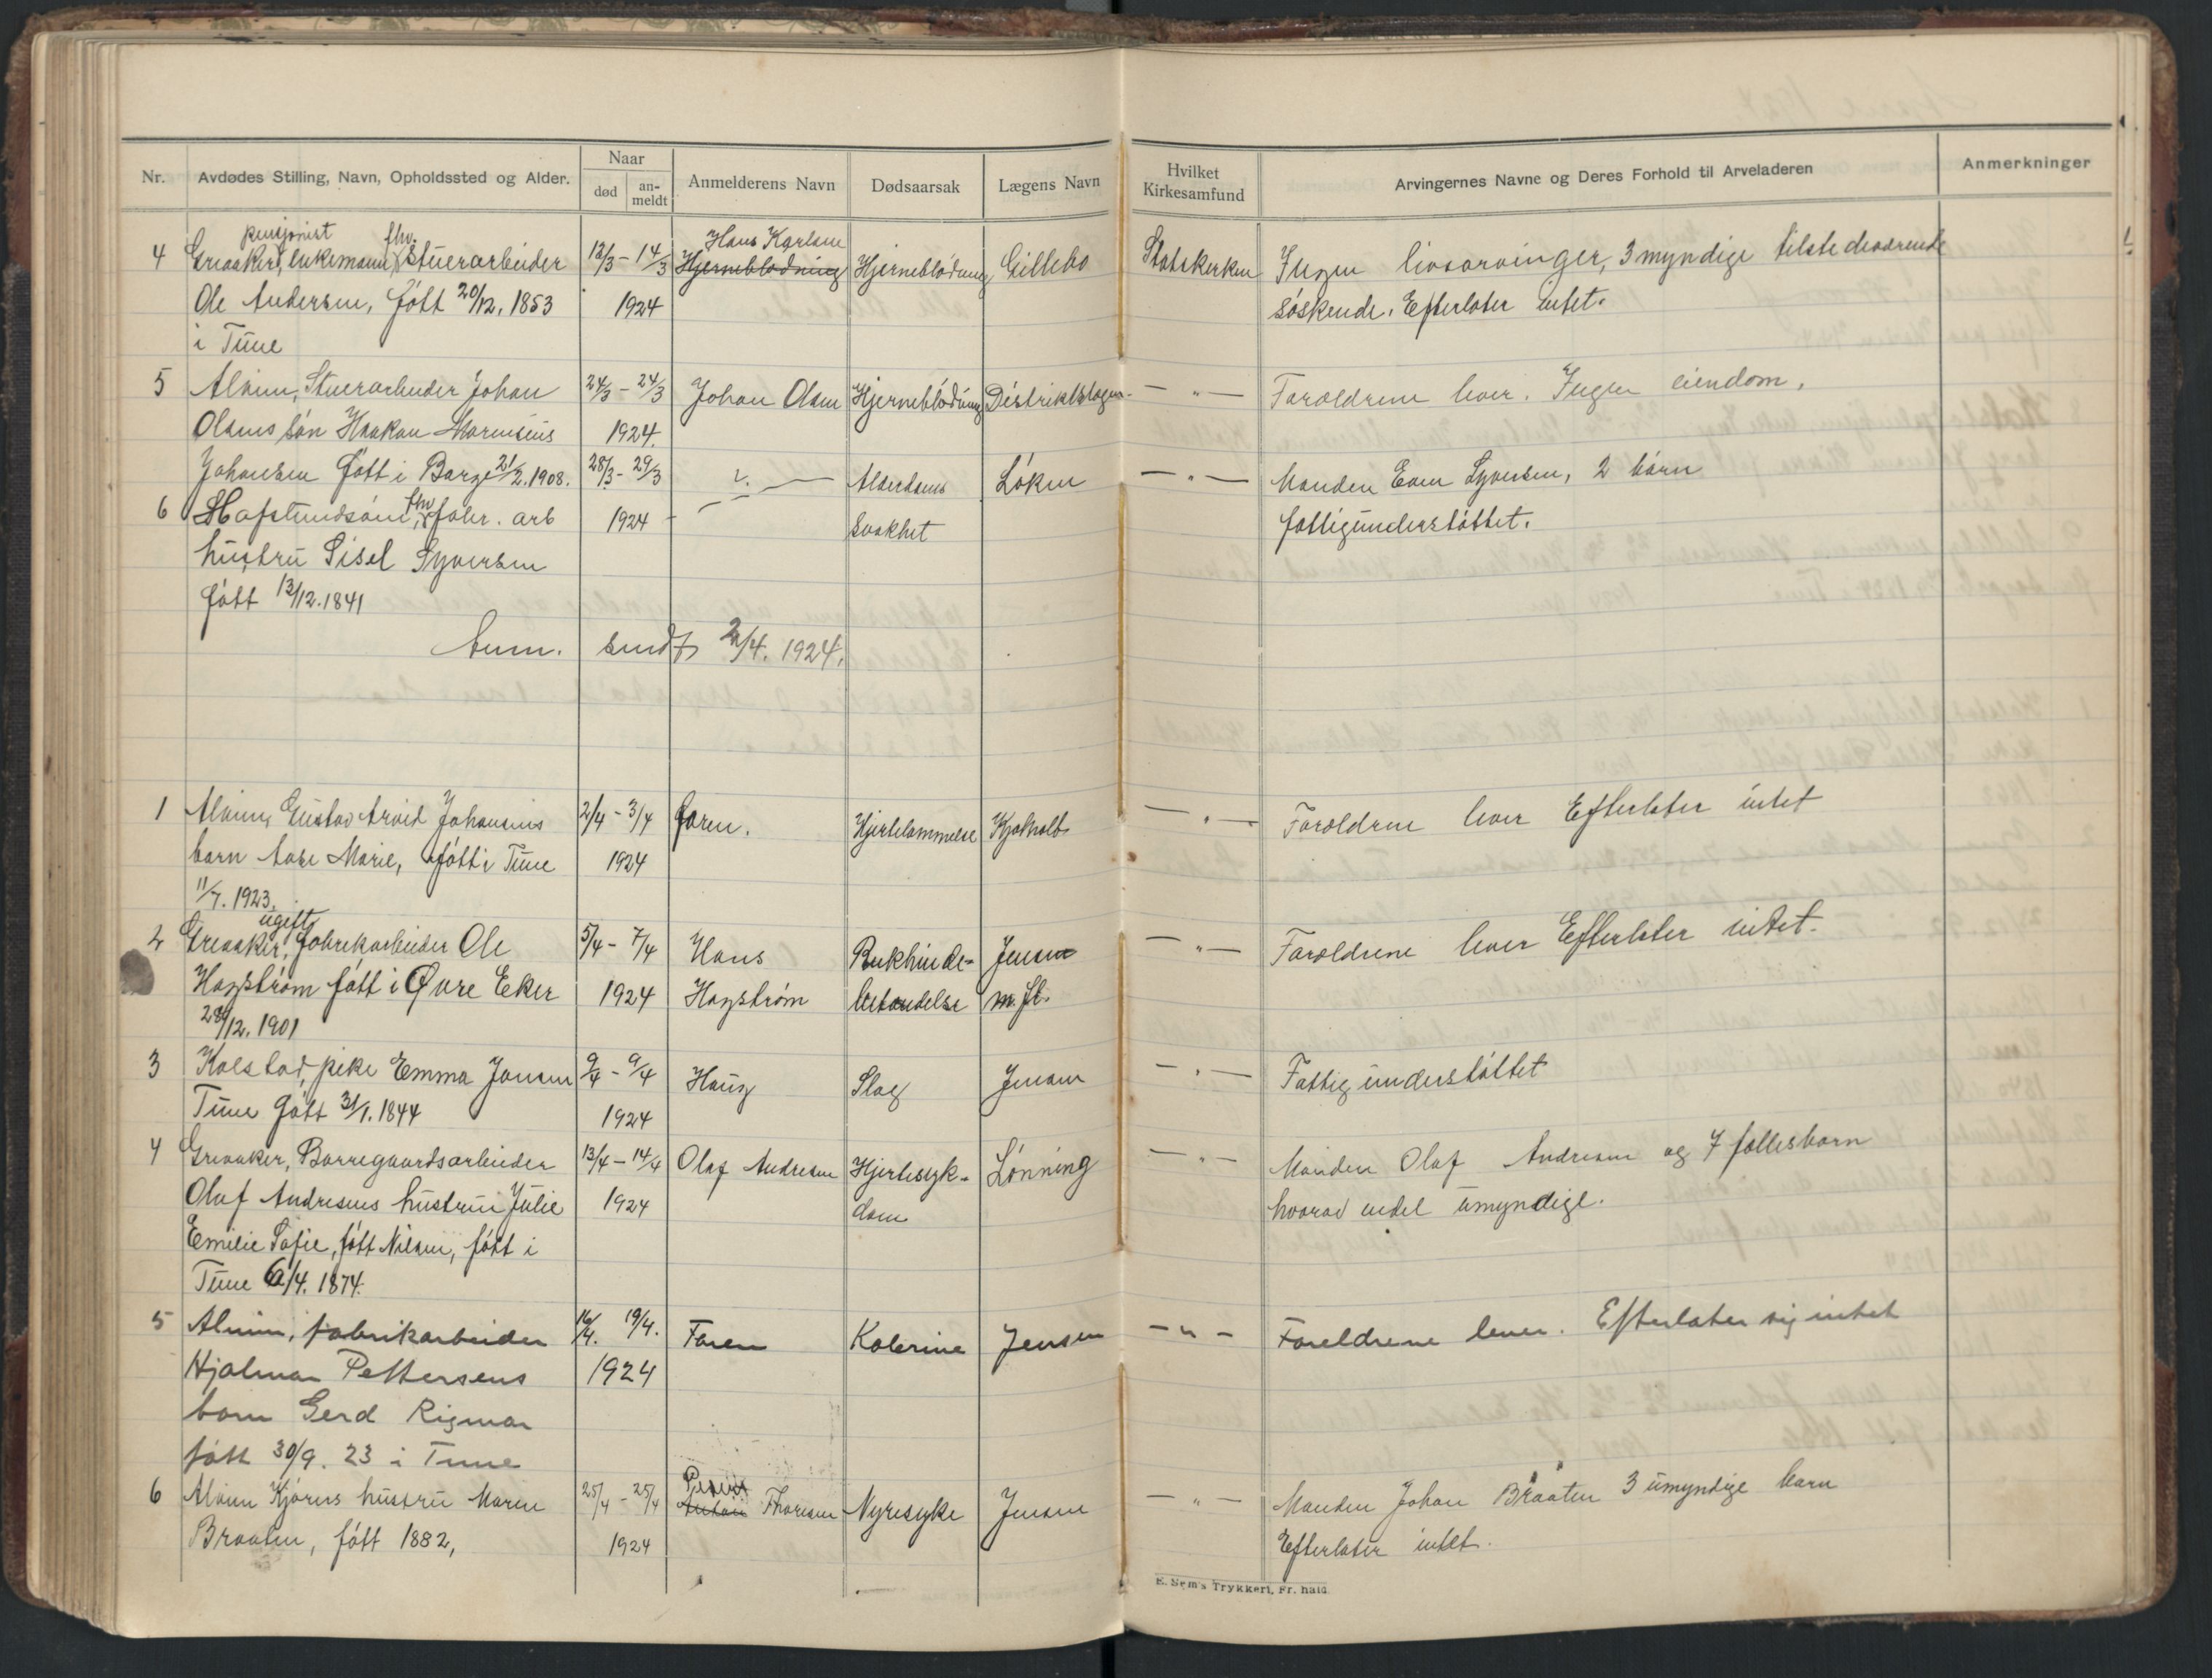 Nr.
Avdødes Stilling, Navn, Opholdssted og Alder.
Naar
død
an-
meldt
Anmelderens Navn
Dødsaarsak
Lægens Navn
Hvilket
Kirkesamfund
Arvingernes Navne og Deres Forhold til Arveladeren
Anmerkninger
pensjonist fhv.
4 Greaaker, enkemann, Stuerarbeider 12/3 - 14/3 Hans Karlsen Hjerneblødning Hjerneblødning Gillebo Statskirken Ingen livsarvinger, 3 myndige tilstedeværende
Ole Andersen, født 20/12. 1853 1924 søskende. Efterlater intet.
i Tune
5 Alvim, Stuerarbeider Johan 24/3 - 24/3 Johan Olsen Hjerneblødning Distriktslægen - " - Forældrene lever. Ingen eiendom.
Olsens søn Haakon Marensius 1924.
Johansen født i Borge 21/2. 1908. 28/3 - 29/3 Alderdoms Løken - " - Manden Even Syversen, 2 børn
6 Hafslundsøen, fhv. fabr. arb 1924 svakhet fattigunderstøttet.
hustru Sisel Syversen
født 13/12. 1841
sendt 2/4. 1924.
1 Alvim, Gustav Arvid Johansens 2/4 - 3/4 Faren. Hjertelammelse - " - Forældrene lever Efterlater intet
barn Aase Marie, født i Tune 1924
11/7. 1923.
ugift
2 Greaaker, Fabrikarbeider Ole 5/4 - 7/4 Hans Bukhinde- Jensen - " - Forældrene lever Efterlater intet.
Hagstrøm født i Øvre Eker 1924 Hagstrøm betændelse m. fl.
28/12. 1901
3 Kolstad, pike Emma Jonsen 9/4 - 9/4 Haug Slag Jensen - " - Fattigunderstøttet
Tune født 31/1. 1844 1924
4 Greaaker, Borregaardsarbeider 13/4 - 14/4 Olaf Andresen Hjertesyk- Lønning - " - Manden Olaf Andresen og 7 fællesbarn
Olaf Andresens hustru Julie 1924 dom hvorav endel umyndige.
Emilie Sofie, født Nilsen, født i
Tune 6/4. 1874.
5 Alvim, fabrikarbeider 16/4. 19/4. Faren Kolerine Jensen - " - Foreldrene lever. Efterlater sig intet
Hjalmar Pettersens 1924
barn Gerd Rigmor
født 30/9. 23 i Tune
6 Alvim Kjørers hustru Maren 25/4 - 25/4 Anton Thoresen Nyresyke Jensen - " - Manden Johan Braaten 3 umyndige barn
Braaten, født 1882, 1924 Efterlater intet.
E. Sem's Trykkeri, Fr.hald